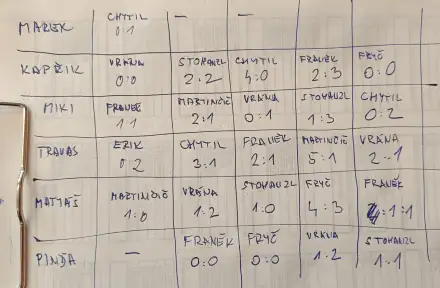 CHYTIL — —
MAREK
0:1
VRÁNA STOHANZL CHYTIL FRANĚK FRYČ
KAPŘIK
0:0 2:2 4:0 2:3 0:0
FRANĚK MARTINČIČ VRÁNA STOHANZL CHYTIL
MIKI
1:1 2:1 0:1 1:3 0:2
ERIK CHYTIL FRANĚK MARTINČIČ VRÁNA
TRAVAS
0:2 3:1 2:1 5:1 2:1
MARTINČIČ VRÁNA STOHANZL FRYČ FRANĚK
MATYÁŠ
1:0 1:2 1:0 4:3 1:1
— FRANĚK FRYČ VRÁNA STOHANZL
PINĎA
0:0 0:0 1:2 1:1